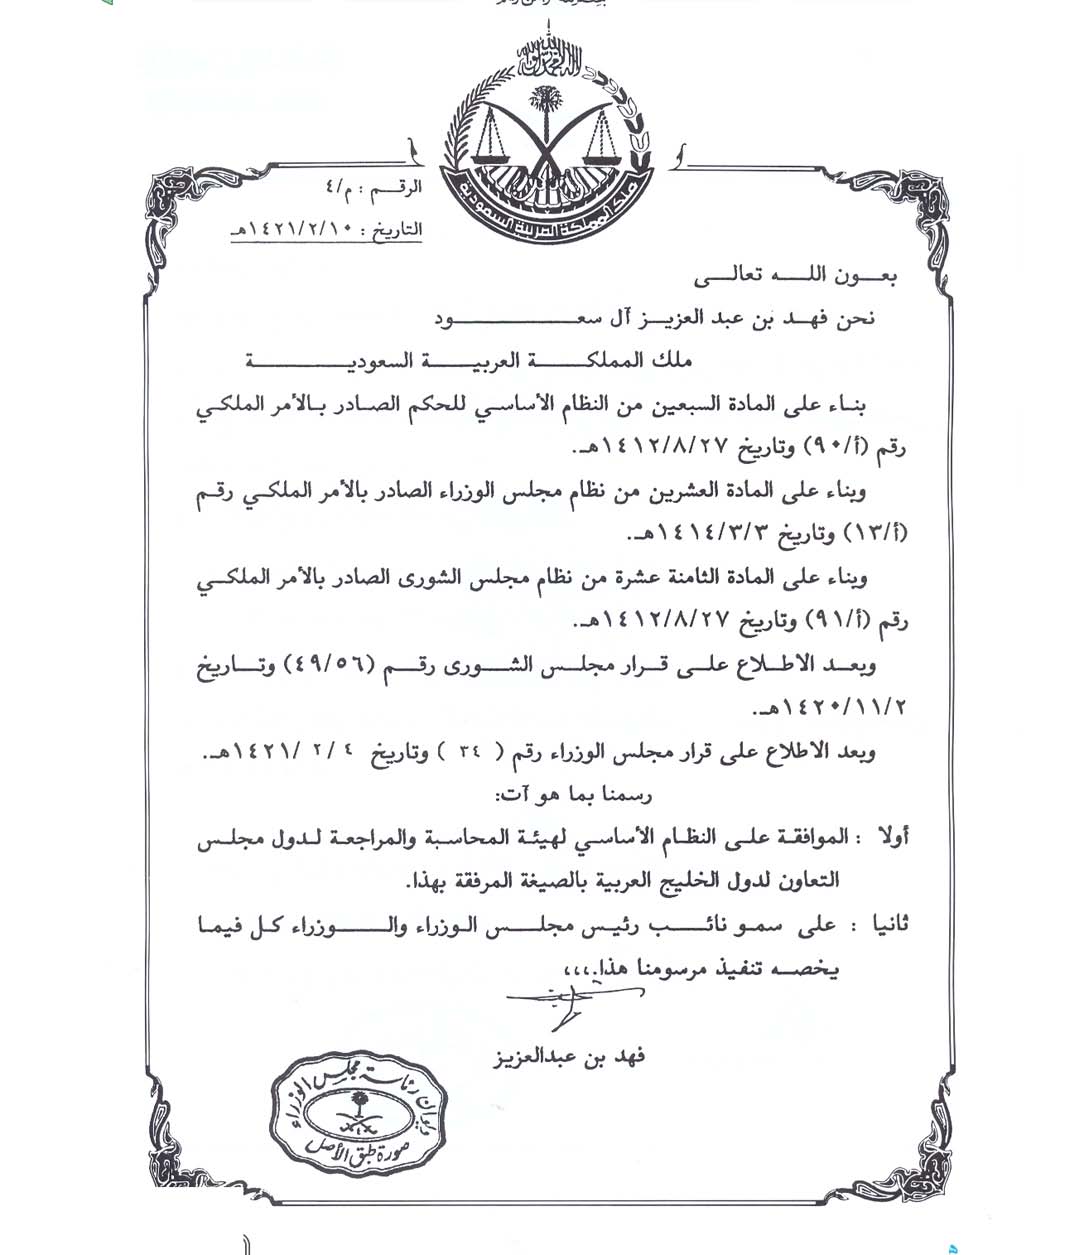 لا إله إلا الله محمد رسول الله
ملك المملكة العربية السعودية
الرقم : م/٤
التاريخ : ١٤٢١/٢/١٠هـ
بعون الله تعالى
نحن فهد بن عبد العزيز آل سعود
ملك المملكة العربية السعودية
بناء على المادة السبعين من النظام الأساسي للحكم الصادر بالأمر الملكي
رقم (أ/٩٠) وتاريخ ١٤١٢/٨/٢٧هـ.
وبناء على المادة العشرين من نظام مجلس الوزراء الصادر بالأمر الملكي رقم
(أ/١٣) وتاريخ ١٤١٤/٣/٣هـ.
وبناء على المادة الثامنة عشرة من نظام مجلس الشورى الصادر بالأمر الملكي
رقم (أ/٩١) وتاريخ ١٤١٢/٨/٢٧هـ.
وبعد الاطلاع على قرار مجلس الشورى رقم (٤٩/٥٦) وتاريخ
١٤٢٠/١١/٢هـ.
وبعد الاطلاع على قرار مجلس الوزراء رقم ( ٣٤ ) وتاريخ ٤ /٢ /١٤٢١هـ.
رسمنا بما هو آت:
أولا : الموافقة على النظام الأساسي لهيئة المحاسبة والمراجعة لدول مجلس
التعاون لدول الخليج العربية بالصيغة المرفقة بهذا.
ثانيا : على سمو نائب رئيس مجلس الوزراء والوزراء كل فيما
يخصه تنفيذ مرسومنا هذا.،،،
فهد بن عبدالعزيز
ديوان رئاسة مجلس الوزراء
صورة طبق الأصل